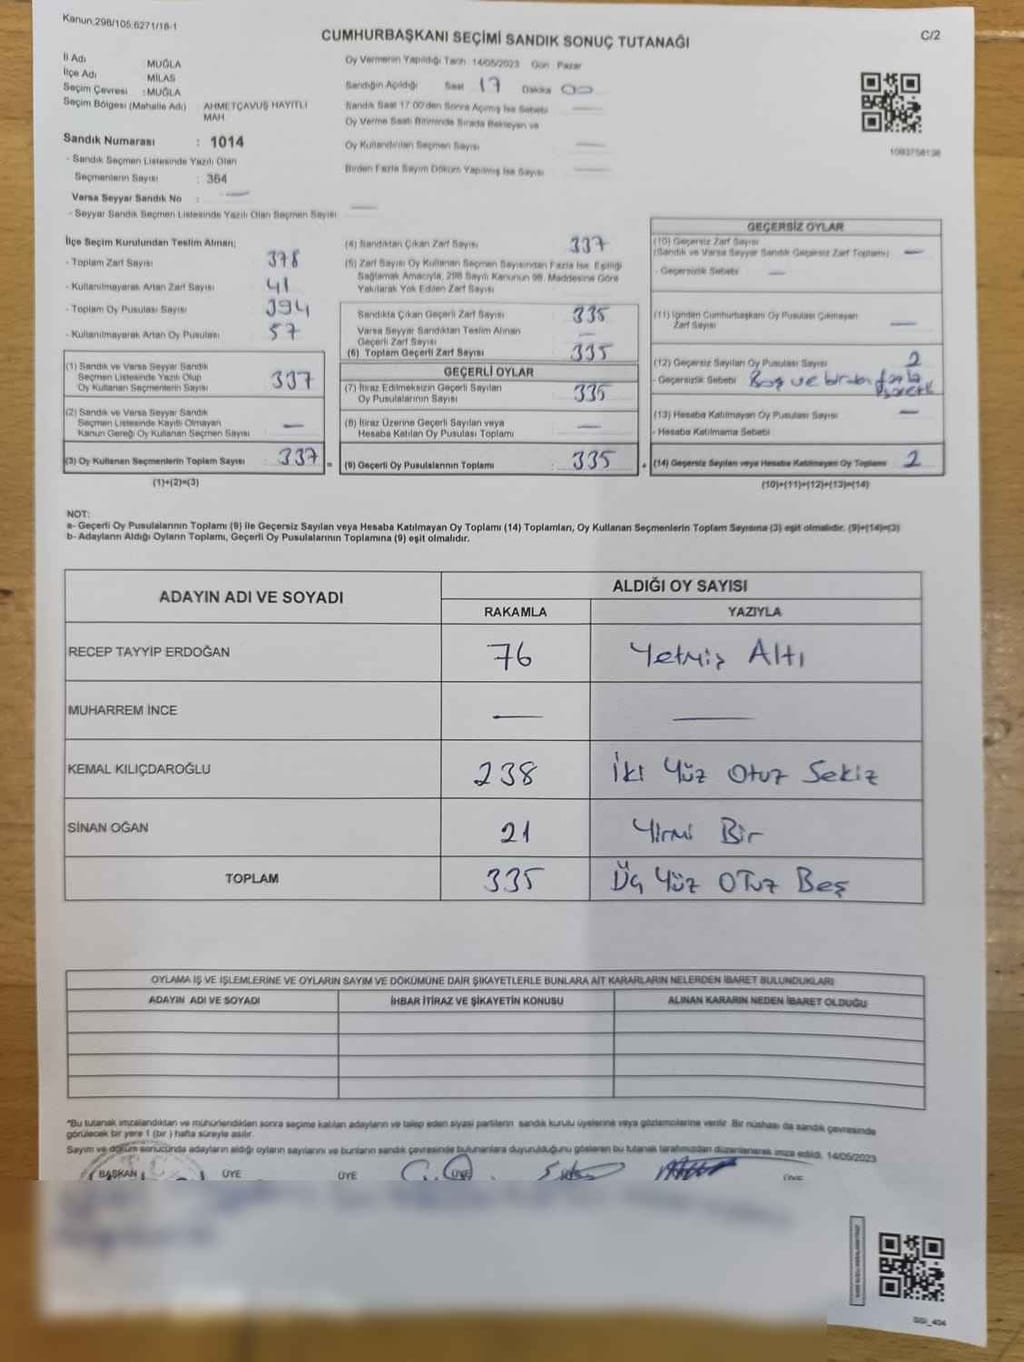 Kanun:298/105,6271/16-1
C/2
CUMHURBAŞKANI SEÇİMİ SANDIK SONUÇ TUTANAĞI
İl Adı MUĞLA
İlçe Adı MİLAS
Seçim Çevresi : MUĞLA
Seçim Bölgesi (Mahalle Adı) : AHMETÇAVUŞ HAYITLI MAH
Sandık Numarası : 1014
- Sandık Seçmen Listesinde Yazılı Olan
Seçmenlerin Sayısı : 364
Varsa Seyyar Sandık No : —
- Seyyar Sandık Seçmen Listesinde Yazılı Olan Seçmen Sayısı —
Oy Vermenin Yapıldığı Tarih 14/05/2023 Gün Pazar
Sandığın Açıldığı Saat 17 Dakika 00
Sandık Saat 17.00'den Sonra Açılmış İse Sebebi —
Oy Verme Saati Bitiminde Sırada Bekleyen ve
Oy Kullandırılan Seçmen Sayısı —
Birden Fazla Sayım Döküm Yapılmış İse Sayısı —
İlçe Seçim Kurulundan Teslim Alınan;
- Toplam Zarf Sayısı 378
- Kullanılmayarak Artan Zarf Sayısı 41
- Toplam Oy Pusulası Sayısı 394
- Kullanılmayarak Artan Oy Pusulası 57
(1) Sandık ve Varsa Seyyar Sandık
Seçmen Listesinde Yazılı Olup
Oy Kullanan Seçmenlerin Sayısı 337
(2) Sandık ve Varsa Seyyar Sandık
Seçmen Listesinde Kayıtlı Olmayan
Kanun Gereği Oy Kullanan Seçmen Sayısı —
(3) Oy Kullanan Seçmenlerin Toplam Sayısı 337 =
(1)+(2)=(3)
(4) Sandıktan Çıkan Zarf Sayısı 337
(5) Zarf Sayısı Oy Kullanan Seçmen Sayısından Fazla İse, Eşitliği
Sağlamak Amacıyla, 298 Sayılı Kanunun 98. Maddesine Göre
Yakılarak Yok Edilen Zarf Sayısı
Sandıkta Çıkan Geçerli Zarf Sayısı 335
Varsa Seyyar Sandıktan Teslim Alınan
Geçerli Zarf Sayısı —
(6) Toplam Geçerli Zarf Sayısı 335
GEÇERLİ OYLAR
(7) İtiraz Edilmeksizin Geçerli Sayılan
Oy Pusulalarının Sayısı 335
(8) İtiraz Üzerine Geçerli Sayılan veya
Hesaba Katılan Oy Pusulası Toplamı —
(9) Geçerli Oy Pusulalarının Toplamı : 335 +
GEÇERSİZ OYLAR
(10) Geçersiz Zarf Sayısı
(Sandık ve Varsa Seyyar Sandık Geçersiz Zarf Toplamı) —
- Geçersizlik Sebebi —
(11) İçinden Cumhurbaşkanı Oy Pusulası Çıkmayan
Zarf Sayısı —
(12) Geçersiz Sayılan Oy Pusulası Sayısı 2
- Geçersizlik Sebebi Boş ve birden fazla
(13) Hesaba Katılmayan Oy Pusulası Sayısı —
- Hesaba Katılmama Sebebi
(14) Geçersiz Sayılan veya Hesaba Katılmayan Oy Toplamı 2
(10)+(11)+(12)+(13)=(14)
NOT:
a- Geçerli Oy Pusulalarının Toplamı (9) ile Geçersiz Sayılan veya Hesaba Katılmayan Oy Toplamı (14) Toplamları, Oy Kullanan Seçmenlerin Toplam Sayısına (3) eşit olmalıdır. (9)+(14)=(3)
b- Adayların Aldığı Oyların Toplamı, Geçerli Oy Pusulalarının Toplamına (9) eşit olmalıdır.
ADAYIN ADI VE SOYADI ALDIĞI OY SAYISI
RAKAMLA YAZIYLA
RECEP TAYYİP ERDOĞAN 76 Yetmiş Altı
MUHARREM İNCE — —
KEMAL KILIÇDAROĞLU 238 İki Yüz Otuz Sekiz
SİNAN OĞAN 21 Yirmi Bir
TOPLAM 335 Üç Yüz OTuz Beş
OYLAMA İŞ VE İŞLEMLERİNE VE OYLARIN SAYIM VE DÖKÜMÜNE DAİR ŞİKAYETLERLE BUNLARA AİT KARARLARIN NELERDEN İBARET BULUNDUKLARI
ADAYIN ADI VE SOYADI İHBAR İTİRAZ VE ŞİKAYETİN KONUSU ALINAN KARARIN NEDEN İBARET OLDUĞU
*Bu tutanak imzalandıktan ve mühürlendikten sonra seçime katılan adayların ve talep eden siyasi partilerin sandık kurulu üyelerine veya gözlemcilerine verilir. Bir nüshası da sandık çevresinde
görülecek bir yere 1 (bir) hafta süreyle asılır.
Sayım ve döküm sonucunda adayların aldığı oyların sayılarını ve bunların sandık çevresinde bulunanlara duyurulduğunu gösteren bu tutanak tarafımızdan düzenlenerek imza edildi. 14/05/2023
BAŞKAN ÜYE ÜYE ÜYE